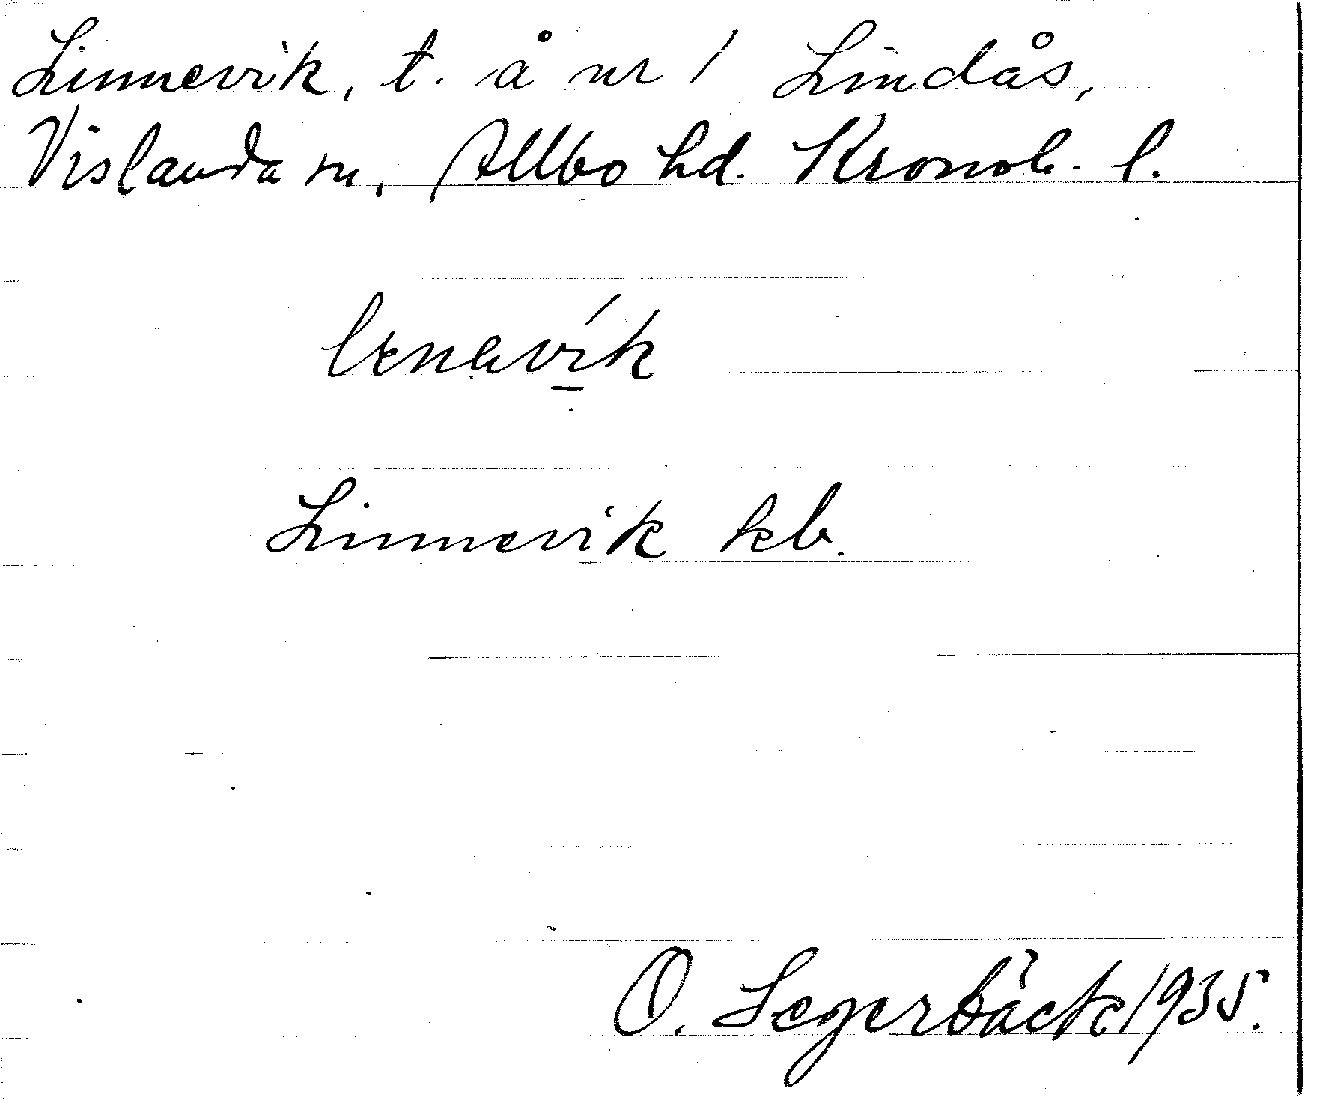 Linnevik, t. å nr 1 Lindås,
Vislanda sn, Allbo hd. Kronob. l.
Linnevik kb.
O. Segerbäck 1935.